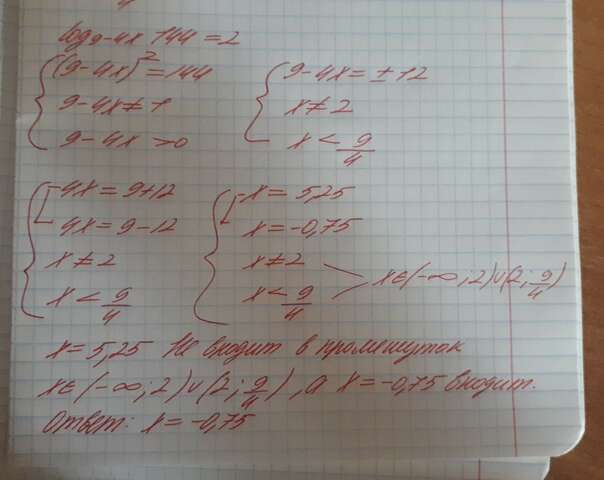 log₉₋₄ₓ 144 = 2
(9-4x)² = 144
9-4x ≠ 1
9-4x > 0
9-4x = ±12
x ≠ 2
x < 9/4
4x = 9+12
4x = 9-12
x ≠ 2
x < 9/4
x = 5,25
x = -0,75
x ≠ 2
x < 9/4
x ∈ (-∞; 2) ∪ (2; 9/4)
x = 5,25 не входит в промежуток
x ∈ (-∞; 2) ∪ (2; 9/4), а x = -0,75 входит.
Ответ: x = -0,75